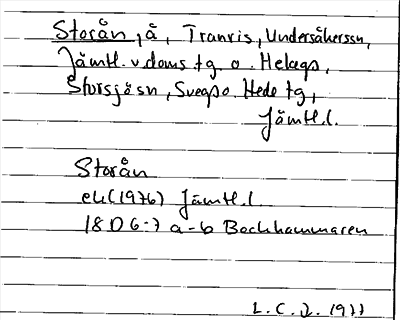 Storån, å, Tranris, Undersåkerssn,
Jämtl. v. doms tg. o. Helags,
Storsjö sn, Svegs o. Hede tg,
Jämtl.l.
Storån
ek (1976) Jämtl.l
18D 6-7 a-b Backhammaren
L. C. D. 1977